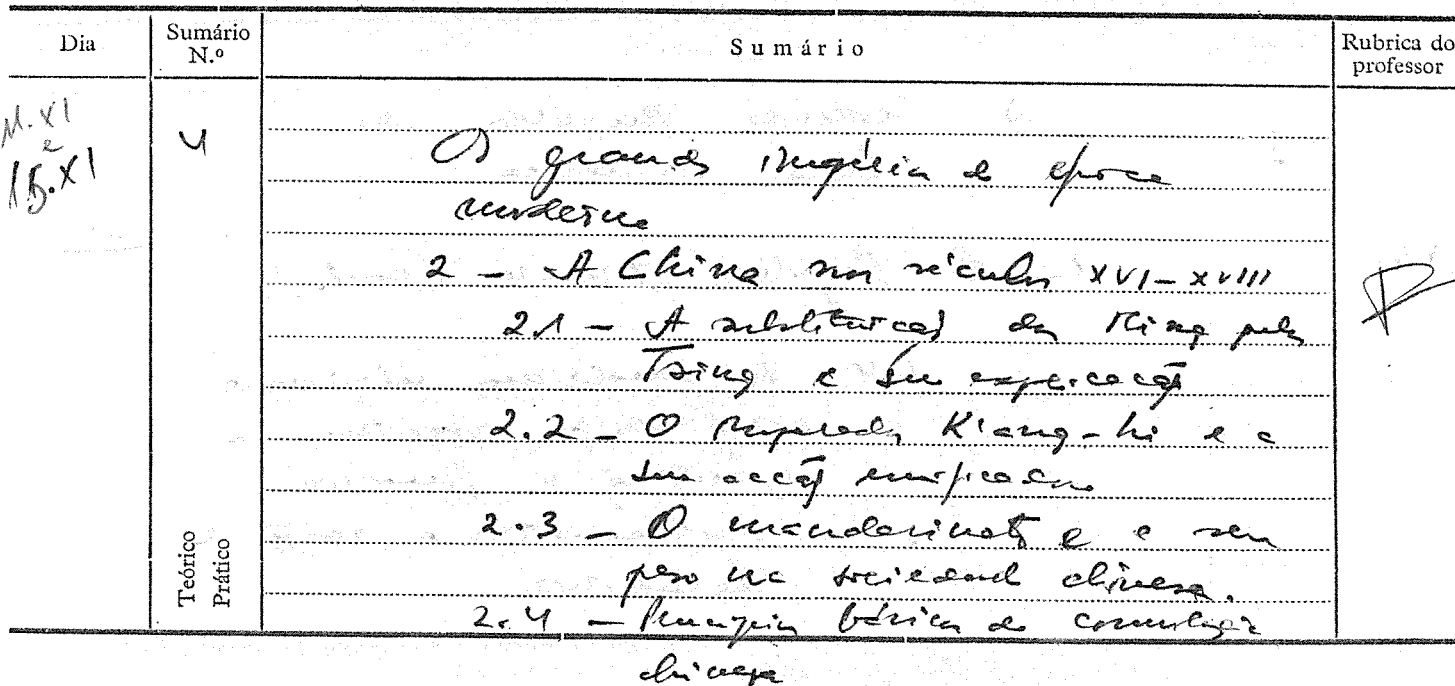 Dia
Sumário N.º
Sumário
Rubrica do professor
11.XI
e
15.XI
4
Os grandes impérios da época
moderna
2 - A China nos séculos XVI-XVIII
2.1 - A substituição dos Ming pelos
Tsing e sua explicação
2.2 - O Imperador K'ang-hi e a
sua acção unificadora
2.3 - O mandarinato e o seu
peso na sociedade chinesa.
2.4 - Princípios básicos da cosmologia
chinesa
Teórico
Prático